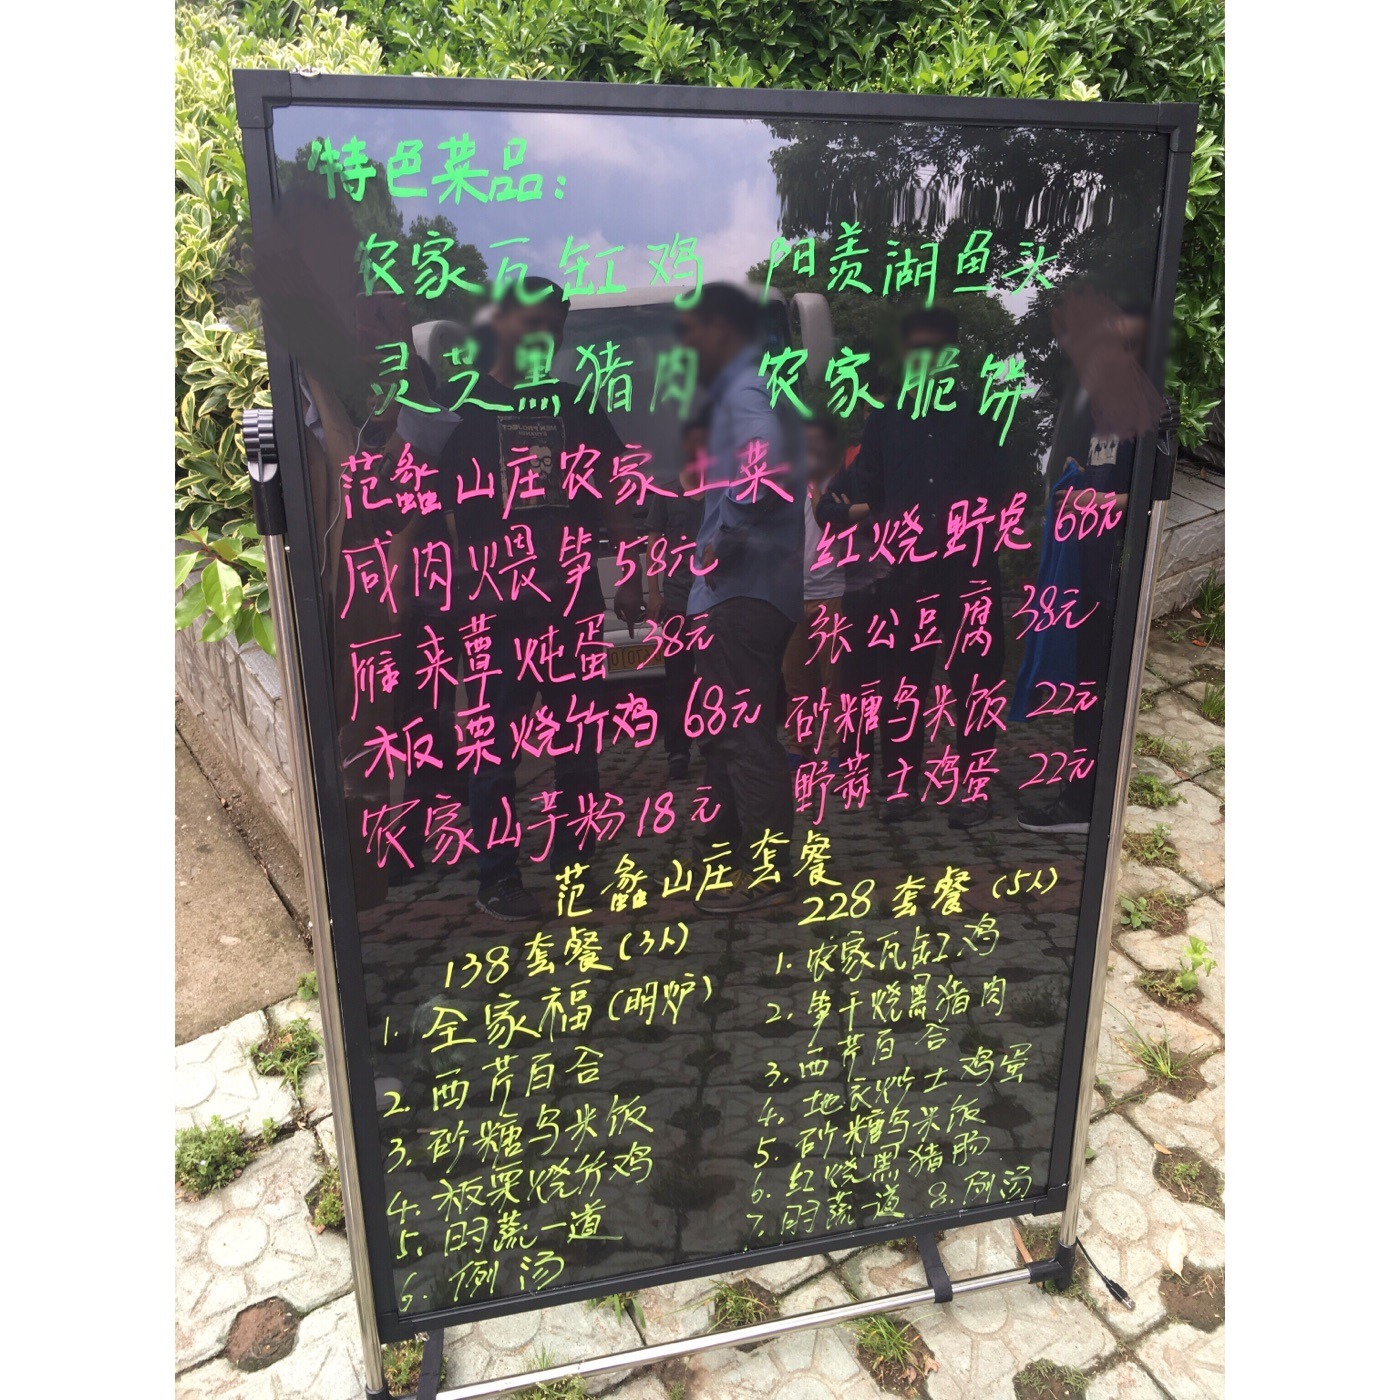 特色菜品:
农家瓦缸鸡 阳羡湖鱼头
灵芝黑猪肉 农家脆饼
范蠡山庄农家土菜
咸肉煨笋58元 红烧野兔 68元
雁来蕈炖蛋 38元 张公豆腐 38元
板栗烧竹鸡 68元 砂糖乌米饭 22元
农家山芋粉 18元 野蒜土鸡蛋 22元
范蠡山庄套餐
138套餐(3人)
1. 全家福(明炉)
2. 西芹百合
3. 砂糖乌米饭
4. 板栗烧竹鸡
5. 时蔬一道
6. 例汤
228套餐(5人)
1. 农家瓦缸鸡
2. 笋干烧黑猪肉
3. 西芹百合
4. 地衣炒土鸡蛋
5. 砂糖乌米饭
6. 红烧黑猪肠
7. 时蔬一道 8. 例汤